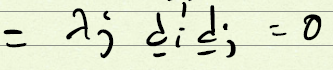 = λj d̲i' d̲j = 0